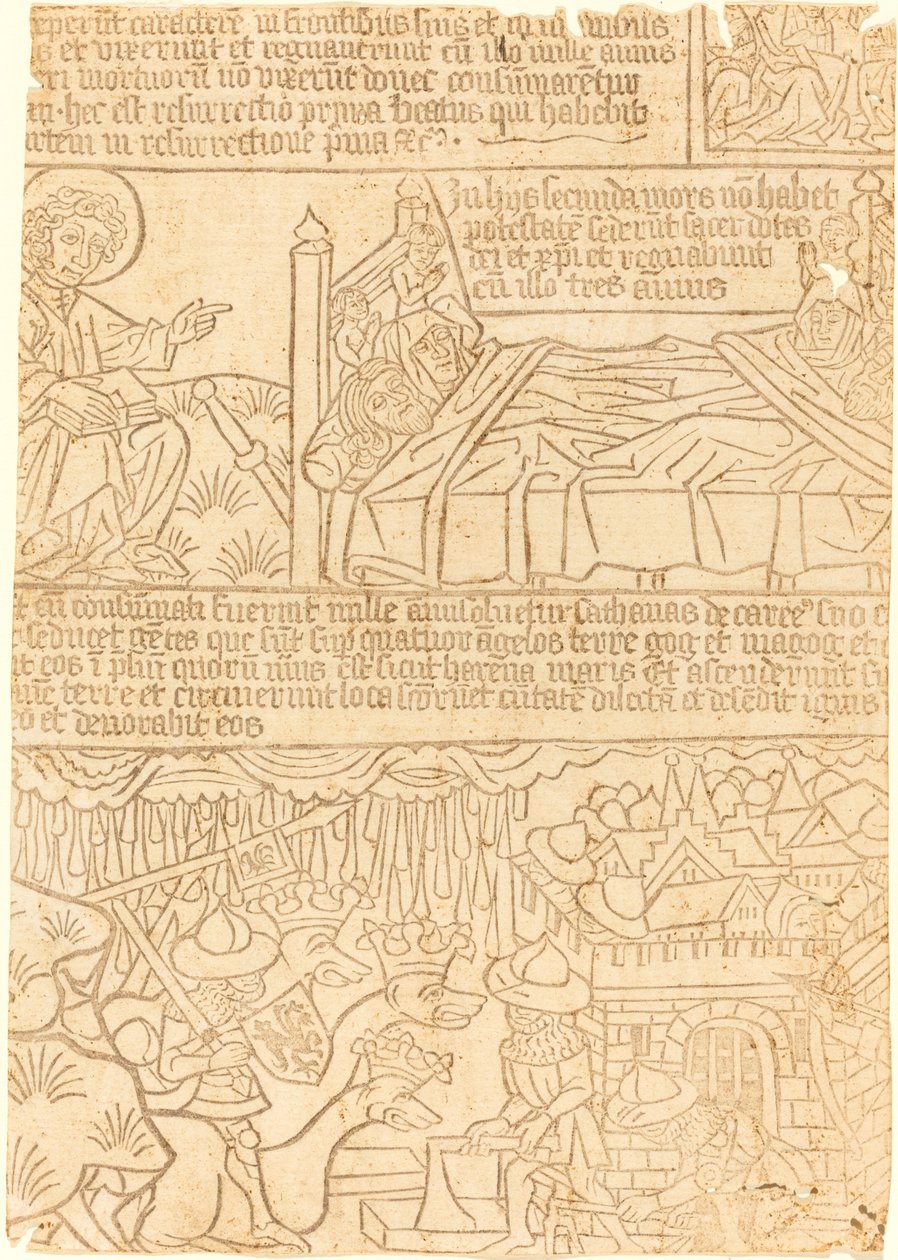 eperūt caracterē in frontibus suis et in manibus
s et vixerunt et regnauerunt cū illo mille annis
ri mortuorū nō vixerūt donec consumarētur
ni · hec est resurrectio prima Beatus qui habebit
artem in resurrectione p̄ma ⁊cͣ ·
In hys secunda mors nō habet
potestatē sed erūt sacerdotes
dei et xp̄i et regnabunt
cū illo tres annis
t cū consumati fuerint mille āni soluetur sathanas de carcē suo
t seducet gētes que sūt sup̄ quatuor āgelos terre gog et magog et
it eos ī pliū quorū nūus est sicut harena maris Et ascenderūt
inē terre et circuierunt loca et ciuitatē dilectā et desēdit ignis
eo et deuorabit eos